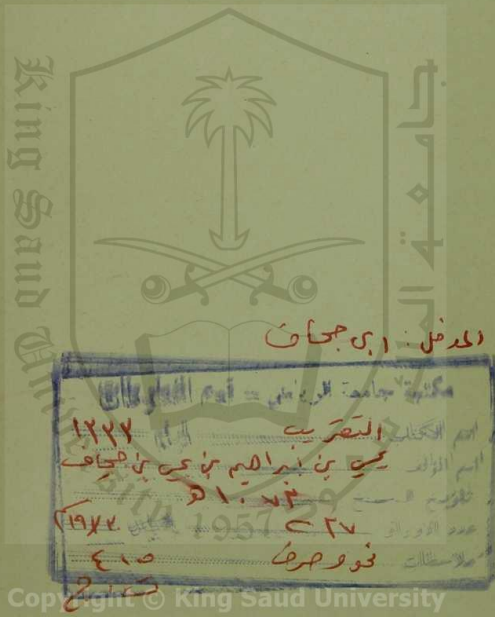 King Saud University
جامعة الملك سعود
1957
المدخل: ابن جحاف
مكتبة جامعة الرياض - قسم المخطوطات
اسم الكتاب التقريب الرقم ١٣٣٧
اسم المؤلف يحيى بن ابراهيم بن يحيى بن جحاف
تاريخ النسخ ١٠٧٣هـ
عدد الأوراق ٢٧
ملاحظات نحو وصرف ٤١٥
Copyright © King Saud University